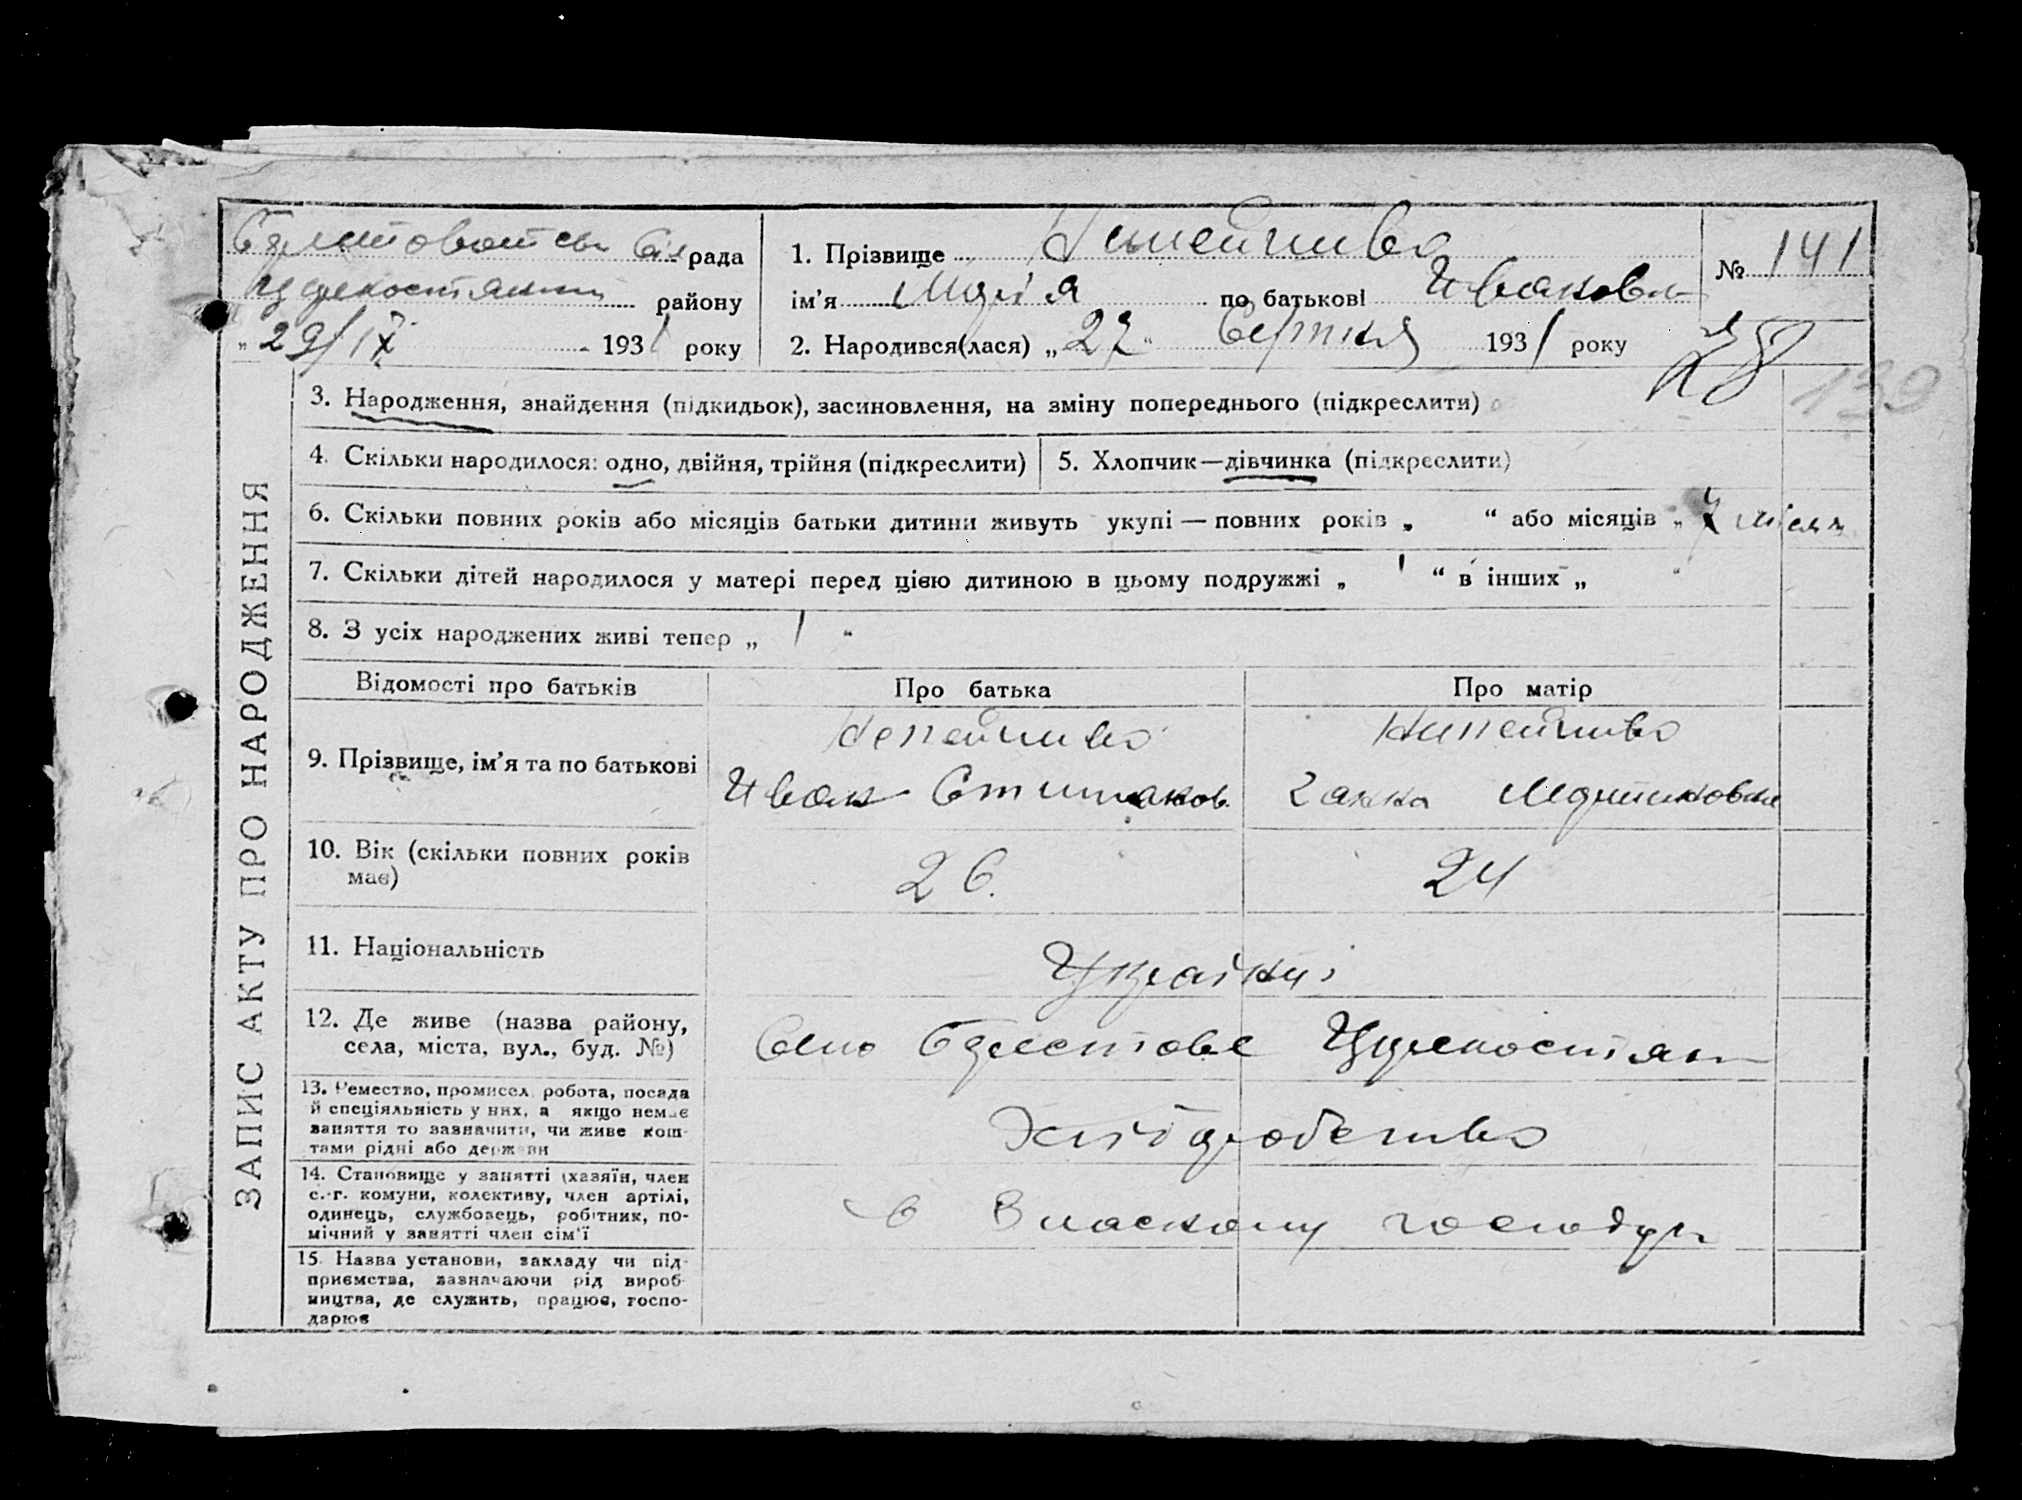 рада
1. Прізвище
№ 141
району
ім'я Марія по батькові Ивановн
„ 29/IX 1931 року
2. Народився(лася) „ 27 “ Серпня 1931 року
28
139
3. Народження, знайдення (підкидьок), засиновлення, на зміну попереднього (підкреслити)
4. Скільки народилося: одно, двійня, трійня (підкреслити)
5. Хлопчик—дівчинка (підкреслити)
6. Скільки повних років або місяців батьки дитини живуть укупі — повних років „ “ або місяців „
7. Скільки дітей народилося у матері перед цією дитиною в цьому подружжі „ 1 “ в інших „ “
8. З усіх народжених живі тепер „ 1 “
Відомості про батьків
Про батька
Про матір
Непейпиво
Непейпиво
9. Прізвище, ім'я та по батькові
Иван
Ганна
10. Вік (скільки повних років має)
26.
24
11. Національність
Українці
12. Де живе (назва району, села, міста, вул., буд. №)
Село
13. Ремество, промисел, робота, посада й спеціяльність у них, а якщо немає заняття то зазначити, чи живе коштами рідні або держави
Хліборобство
14. Становище у занятті (хазяїн, член с.-г. комуни, колективу, член артілі, одинець, службовець, робітник, помічний у занятті член сім'ї
в Власному господар
15. Назва установи, закладу чи підприємства, зазначаючи рід виробництва, де служить, працює, господарює
ЗАПИС АКТУ ПРО НАРОДЖЕННЯ